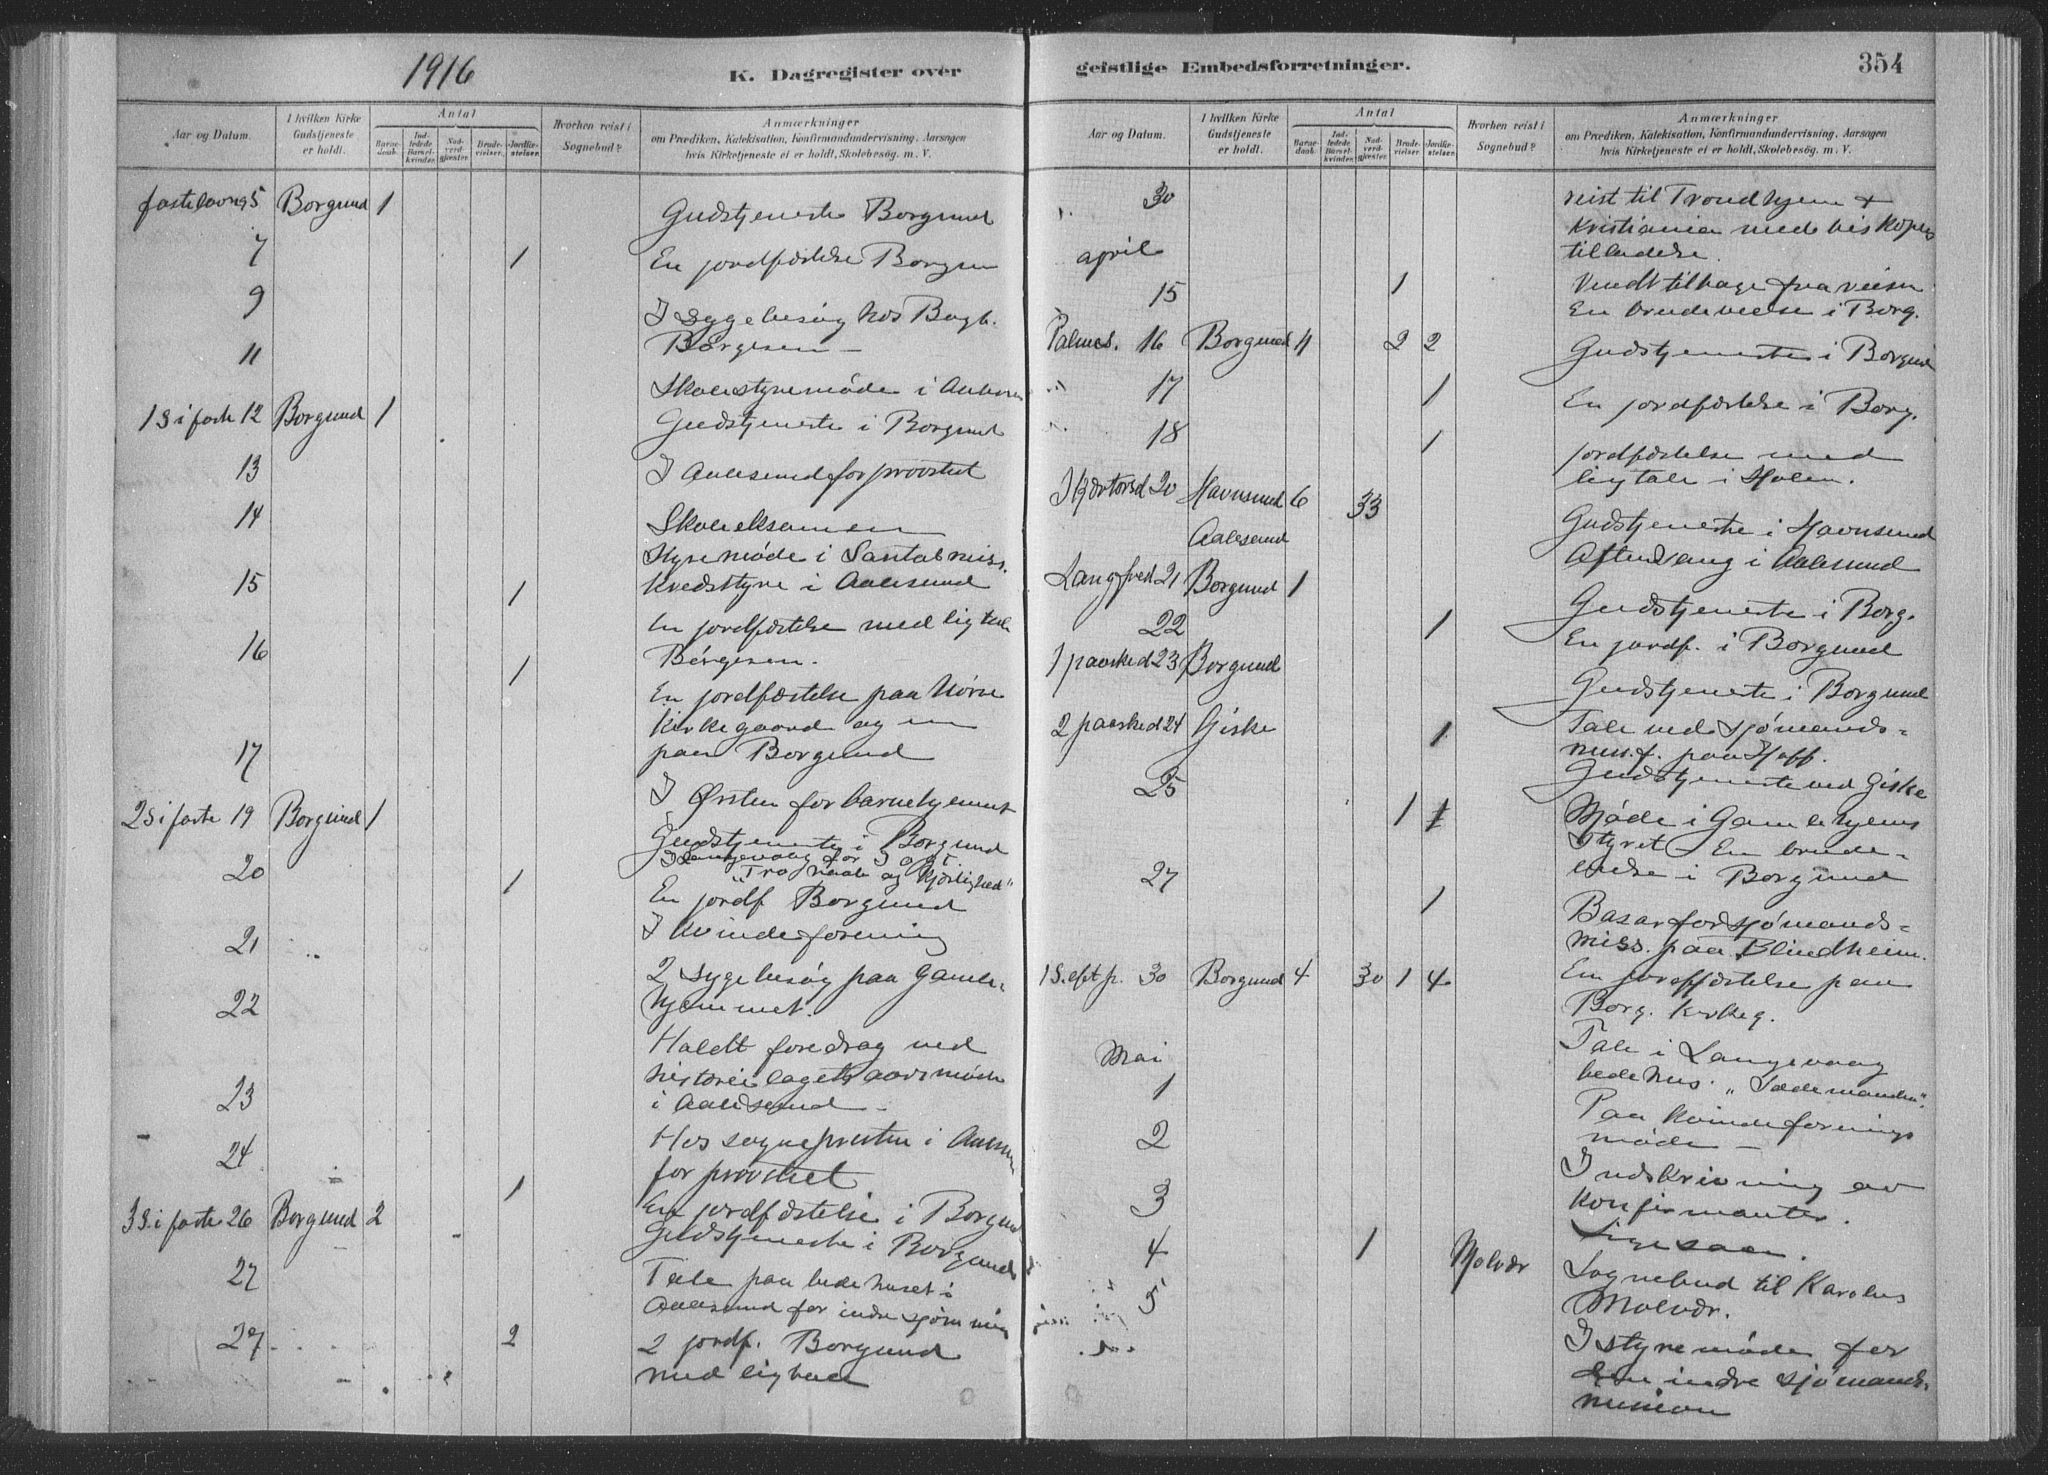 1916
K. Dagregister over
Aar og Datum.
I hvilken Kirke Gudstjeneste er holdt.
Antal
Barnedaab.
Indledede Barselkvinder.
Nadverdgjester.
Brudevielser.
Jordfæstelser.
Hvorhen reist i Sognebud?
Anmærkninger
om Prædiken, Katekisation, Konfirmandundervisning, Aarsagen
hvis Kirketjeneste ei er holdt, Skolebesøg. m. V.
fastelavns 5 Borgund 1
Gudstjeneste Borgund
7 1 En jordfæstelse Borgun
9 I sygebesøg hos Bagb.
Børgesen
11
Skolestyremøde i
1 S i faste 12 Borgund 1 Gudstjeneste i Borgund
13 I Aalesund for provstiet
14 Skoleeksamen
Styremøde i Santalmiss.
15 1 Kredsstyre i Aalesund
En jordfæstelse med ligtale
16 Børgesen.
1 En jordfæstelse paa Nørve
Kirkegaard og en
17 paa Borgund
I Ørsten for barnehjemmet
2 S i faste 19 Borgund 1
Gudstjeneste i Borgund
I Langevaag for I.O.G.T.
20 "Tro haab og Kjærlighed"
1 En jordf Borgund
I Kvindeforening
21
2 sygebesøg paa Gamle-
22 hjemmet.
Holdt foredrag ved
historielagets aarsmøde
23 i Aalesund
24 Hos sogneprsten i Aalesun
for provstiet
1 En jordfæstelse i Borgund
3 S. i faste 26 Borgund 2
Gudstjeneste i Borgund
27 Tale paa bedehuset i
Aalesund for indre sjøm. mis
27 2 2 jordf. Borgund
med ligtale
geistlige Embedsforretninger.
354
Aar og Datum.
I hvilken Kirke Gudstjeneste er holdt.
Antal
Barnedaab.
Indledede Barselkvinder.
Nadverdgjester.
Brudevielser.
Jordfæstelser.
Hvorhen reist i Sognebud?
Anmærkninger
om Prædiken, Katekisation, Konfirmandundervisning, Aarsagen
hvis Kirketjeneste ei er holdt, Skolebesøg. m. V.
30 reist til Trondhjem &
Kristiania med biskopens
april tilladelse.
15 1 Vendt tilbage fra reisen
En brudevielse i Borg.
Palmes. 16 Borgund 11 2 2
Gudstjeneste i Borgund
17 1 En jordfæstelse i Borg.
18 1 jordfæstelse med
ligtale i Holen.
Skjærtorsd 20 Havnsund 6 33
Gudstjeneste i Havnsund
Aalesund Aftensang i Aalesund
Langfred 21 Borgund 1
Gudstjeneste i Borg.
22 1 En jordf. i Borgund
1 paasked 23 Borgund
Gudstjeneste i Borgund
2 paasked 24 Giske 1 Tale ved sjømands-
miss.f. paa Hoff.
25 Gudstjeneste ved Giske
1 1 Møde i Gamlehjems
styret En brude-
27 vielse i Borgund
1 Basar for sjømands-
miss. paa Blindheim.
1 S. eft p. 30 Borgund 4 30 1 4 En jordfæstelse paa
Borg. Kirkeg.
Mai Tale i Langevaag
1 bedehus. "Sædemanden".
Paa Kvindeforenings
2 møde
Indskrivning av
3 konfirmanter.
Ligesaa.
4 1 Molvær Sognebud til Karolus
5 Molvær.
I styremøde for
den indre sjømands-
mission